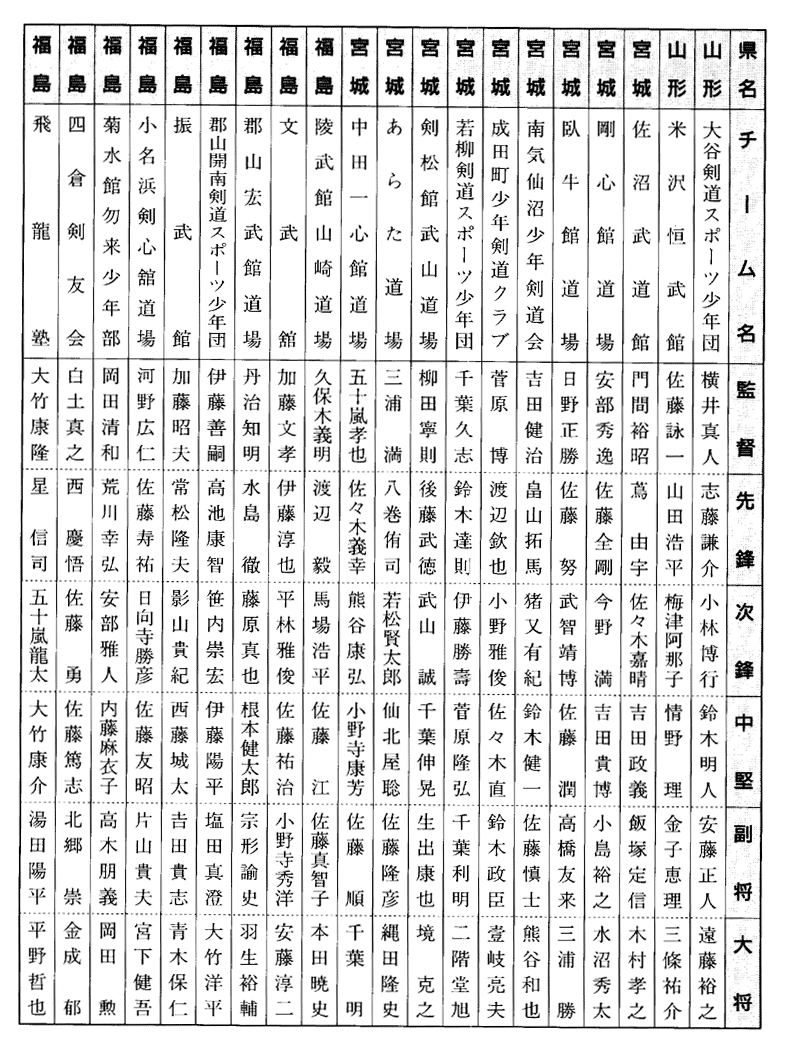 県名 チーム名 監督 先鋒 次鋒 中堅 副将 大将
山形 大谷剣道スポーツ少年団 横井真人 志藤謙介 小林博行 鈴木明人 安藤正人 遠藤裕之
山形 米沢恒武館 佐藤詠一 山田浩平 梅津阿那子 情野理 金子恵理 三條祐介
宮城 佐沼武道館 門間裕昭 蔦由宇 佐々木嘉晴 吉田政義 飯塚定信 木村孝之
宮城 剛心館道場 安部秀逸 佐藤全剛 今野満 吉田貴博 小島裕之 水沼秀太
宮城 臥牛館道場 日野正勝 佐藤努 武智靖博 佐藤潤 高橋友来 三浦勝
宮城 南気仙沼少年剣道会 吉田健治 畠山拓馬 猪又有紀 鈴木健一 佐藤慎士 熊谷和也
宮城 成田町少年剣道クラブ 菅原博 渡辺欽也 小野雅俊 佐々木直 鈴木政臣 壹岐亮夫
宮城 若柳剣道スポーツ少年団 千葉久志 鈴木達則 伊藤勝壽 菅原隆弘 千葉利明 二階堂旭
宮城 剣松館武山道場 柳田寧則 後藤武徳 武山誠 千葉伸晃 生出康也 境克之
宮城 あらた道場 三浦満 八巻侑司 若松賢太郎 仙北屋聡 佐藤隆彦 縄田隆史
宮城 中田一心館道場 五十嵐孝也 佐々木義幸 熊谷康弘 小野寺康芳 佐藤順 千葉明
福島 陵武館山崎道場 久保木義明 渡辺毅 馬場浩平 佐藤江 佐藤真智子 本田暁史
福島 文武館 加藤文孝 伊藤淳也 平林雅俊 佐藤祐治 小野寺秀洋 安藤淳二
福島 郡山宏武館道場 丹治知明 水島徹 藤原真也 根本健太郎 宗形諭史 羽生裕輔
福島 郡山開南剣道スポーツ少年団 伊藤善嗣 高池康智 笹内崇宏 伊藤陽平 塩田真澄 大竹洋平
福島 振武館 加藤昭夫 常松隆夫 影山貴紀 西藤城太 吉田貴志 青木保仁
福島 小名浜剣心舘道場 河野広仁 佐藤寿祐 日向寺勝彦 佐藤友昭 片山貴夫 宮下健吾
福島 菊水館勿来少年部 岡田清和 荒川幸弘 安部雅人 内藤麻衣子 高木朋義 岡田勲
福島 四倉剣友会 白土真之 西慶悟 佐藤勇 佐藤篤志 北郷崇 金成郁
福島 飛龍塾 大竹康隆 星信司 五十嵐龍太 大竹康介 湯田陽平 平野哲也